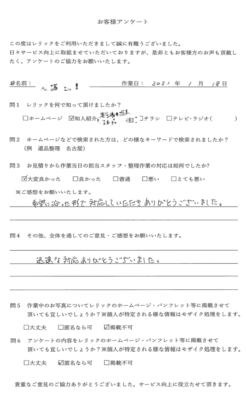 お客様アンケート
この度はレリックをご利用いただきまして誠に有難うございました。
日々サービス向上に取組ませていただいておりますが、是非ともお客様方のお声も頂戴し
たく、アンケートのご協力をお願いいたします。
お名前: 作業日: 2021年 1月 18日
問1 レリックを何で知って頂けましたか?
□ホームページ ☑知人紹介( ) □チラシ □テレビ・ラジオ( )
問2 ホームページなどで検索された方は、どの様なキーワードで検索されましたか?
(例 遺品整理 名古屋)
問3 お見積りから作業当日の担当スタッフ・整理作業の対応は如何でしたか?
☑大変良かった □良かった □普通 □悪い □とても悪い
※ご感想をお願いします。
希望に沿った形で対応していただきありがとうございました。
問4 その他、全体を通してのご意見・ご感想をお願いいたします。
迅速な対応ありがとうございました。
問5 作業中のお写真についてレリックのホームページ・パンフレット等に掲載させて
頂いても宜しいでしょうか?※個人が特定される様な情報はモザイク処理をします。
□大丈夫 □匿名なら可 ☑掲載不可
問6 アンケートの内容をレリックのホームページ・パンフレット等に掲載させて
頂いても宜しいでしょうか?※個人が特定される様な情報はモザイク処理をします。
□大丈夫 ☑匿名なら可 □掲載不可
貴重なご意見のご協力ありがとうございました。サービス向上に役立たせて頂きます。